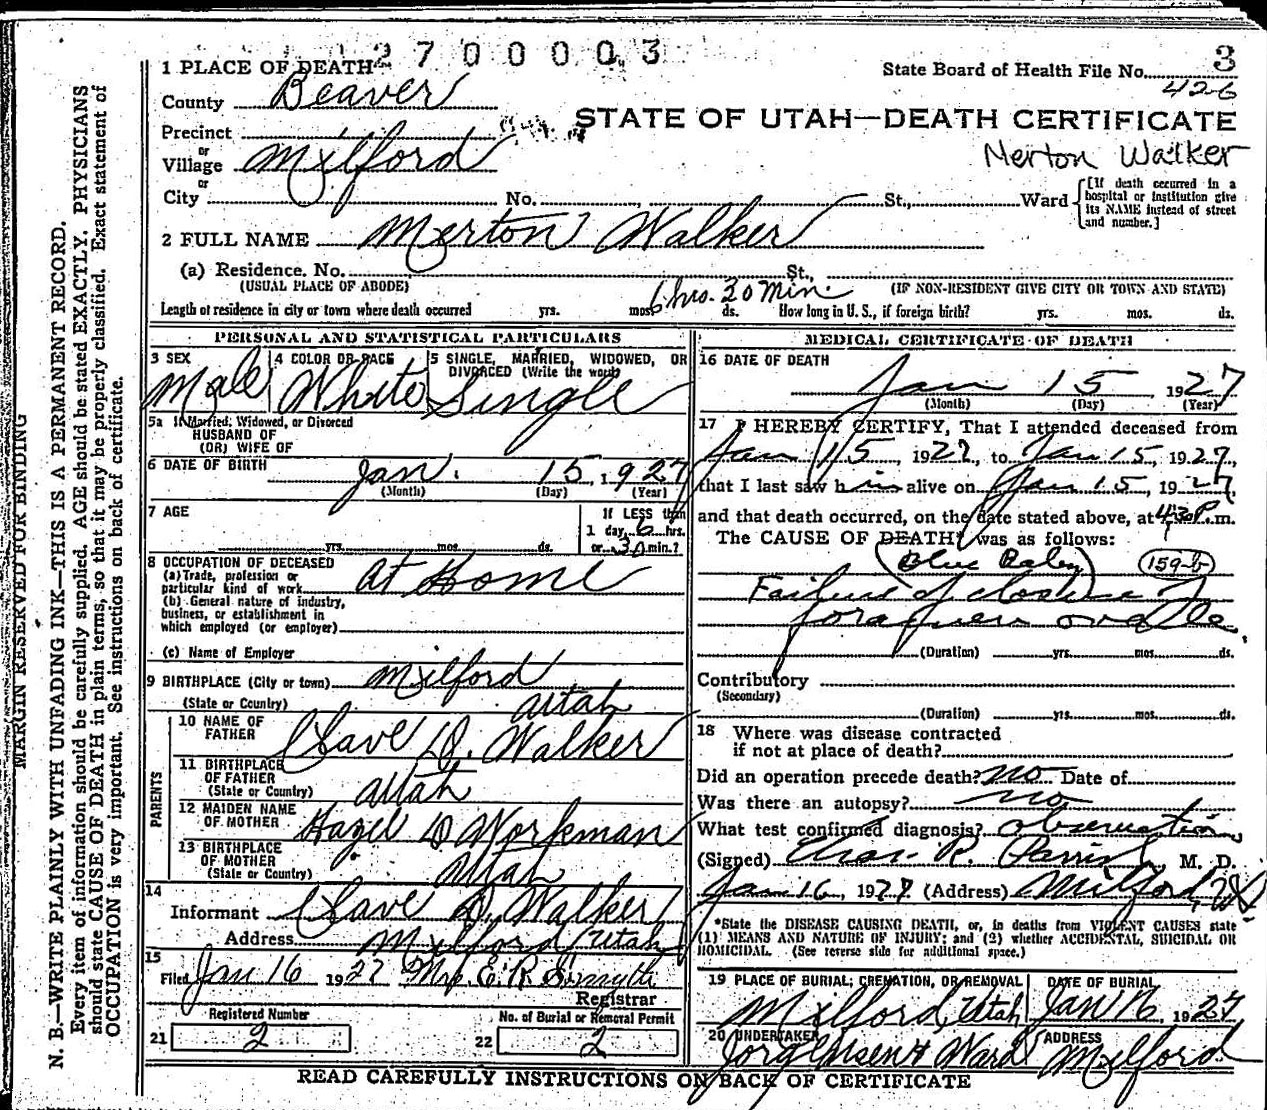 2700003
3
1 PLACE OF DEATH
State Board of Health File No.
426
County Beaver
STATE OF UTAH—DEATH CERTIFICATE
Precinct
or
Village Milford
Merton Walker
or
City No. , St., Ward
[If death occurred in a hospital or institution give its NAME instead of street and number.]
2 FULL NAME Merton Walker
(a) Residence. No. St.,
(USUAL PLACE OF ABODE) (IF NON-RESIDENT GIVE CITY OR TOWN AND STATE)
Length of residence in city or town where death occurred yrs. mos. 6 hrs. 30 Min. ds. How long in U. S., if foreign birth? yrs. mos. ds.
PERSONAL AND STATISTICAL PARTICULARS
3 SEX Male
4 COLOR OR RACE White
5 SINGLE, MARRIED, WIDOWED, OR DIVORCED (Write the word) Single
5a If Married, Widowed, or Divorced
HUSBAND OF
(OR) WIFE OF
6 DATE OF BIRTH Jan. 15, 1927
(Month) (Day) (Year)
7 AGE yrs. mos. ds.
If LESS than
1 day, 6 hrs.
or 30 min.?
8 OCCUPATION OF DECEASED
(a) Trade, profession or
particular kind of work At Home
(b) General nature of industry,
business, or establishment in
which employed (or employer)
(c) Name of Employer
9 BIRTHPLACE (City or town) Milford
(State or Country) Utah
PARENTS
10 NAME OF FATHER Clave D. Walker
11 BIRTHPLACE OF FATHER
(State or Country) Utah
12 MAIDEN NAME OF MOTHER Hazel D Workman
13 BIRTHPLACE OF MOTHER
(State or Country) Utah
14
Informant Clave D. Walker
Address Milford Utah
15
Filed Jan 16 1927 Mrs. E. R. Smyth
Registrar
Registered Number
21 2
No. of Burial or Removal Permit
22 2
MEDICAL CERTIFICATE OF DEATH
16 DATE OF DEATH
Jan 15 1927
(Month) (Day) (Year)
17 I HEREBY CERTIFY, That I attended deceased from
Jan 15, 1927, to Jan 15, 1927,
that I last saw him alive on Jan 15, 1927,
and that death occurred, on the date stated above, at 430 P.m.
The CAUSE OF DEATH* was as follows:
(Blue Baby) 159-b
Failure of closure of
foramen ovale.
(Duration) yrs. mos. ds.
Contributory
(Secondary)
(Duration) yrs. mos. ds.
18 Where was disease contracted
if not at place of death?
Did an operation precede death? no Date of
Was there an autopsy? no
What test confirmed diagnosis? observation
(Signed) R. Parrish, M. D.
Jan 16, 1927 (Address) Milford, Ut
*State the DISEASE CAUSING DEATH, or, in deaths from VIOLENT CAUSES state
(1) MEANS AND NATURE OF INJURY; and (2) whether ACCIDENTAL, SUICIDAL OR
HOMICIDAL. (See reverse side for additional space.)
19 PLACE OF BURIAL, CREMATION, OR REMOVAL
Milford, Utah
DATE OF BURIAL
Jan 16, 1927
20 UNDERTAKER
Jorgensen & Ward
ADDRESS
Milford
READ CAREFULLY INSTRUCTIONS ON BACK OF CERTIFICATE
MARGIN RESERVED FOR BINDING
N. B.—WRITE PLAINLY WITH UNFADING INK—THIS IS A PERMANENT RECORD.
Every item of information should be carefully supplied. AGE should be stated EXACTLY. PHYSICIANS
should state CAUSE OF DEATH in plain terms, so that it may be properly classified. Exact statement of
OCCUPATION is very important. See instructions on back of certificate.